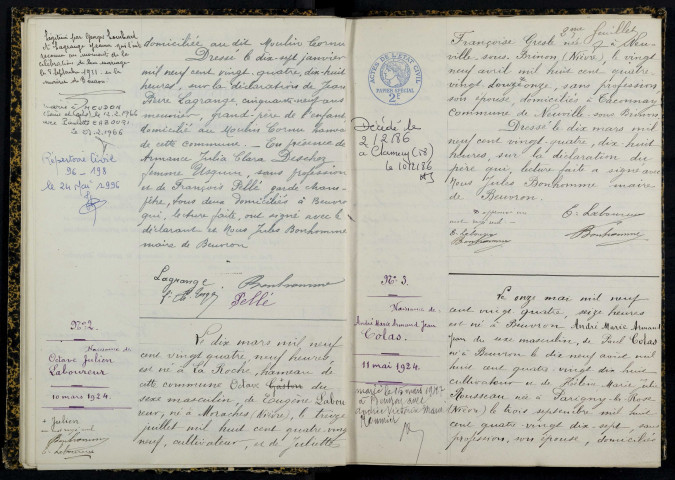 Légitimé par Georges
et Lagrange
reconnu au moment de la
célébration de leur mariage
le 8 Septembre 1933 en la
mairie de Beuvron
Marié à MEUDON
le 12.2.1966
avec Paulette
le 2.1966
Répertoire Civil
96 - 198
le 24 Mai 1996
domiciliée au dit Moulin Cornu
Dressé le dix sept janvier
mil neuf cent vingt quatre, dix huit
heures, sur la déclaration de Jean
Pierre Lagrange, cinquante neuf ans
meunier, grand-père de l'enfant,
domicilié au Moulin Cornu hameau
de cette commune. En présence de
Armance Julia Clara
femme, sans profession
et de François Pellé garde cham-
pêtre, tous deux domiciliés à Beuvron
qui, lecture faite, ont signé avec le
déclarant et Nous Jules Bonhomme
maire de Beuvron
Lagrange Bonhomme
Pellé
N° 2.
Naissance de
Octave Julien
Laboureur
10 mars 1924.
+ Julien
Bonhomme
E. Laboureur
Le dix mars mil neuf
cent vingt quatre, neuf heures,
est né à la Roche, hameau de
cette commune Octave Gaston du
sexe masculin, de Eugène Labou
reur, né à Moraches (Nièvre), le treize
juillet mil huit cent quatre vingt
neuf, cultivateur, et de Juliette
2me feuillet
Françoise née à Neu-
ville sous Brinon (Nièvre) le vingt
neuf avril mil huit cent quatre
vingt douze, sans profession
son épouse, domiciliés à
Commune de Neuville sous Brinon
Dressé le dix mars mil
neuf cent vingt quatre, dix huit
heures, sur la déclaration du
père qui, lecture faite a signé avec
Nous Jules Bonhomme maire
de Beuvron.
E. Laboureur
Bonhomme
E. Laboureur
Bonhomme
ACTES DE L'ETAT CIVIL
PAPIER SPECIAL
2F
Décédé le
2/12/86
à Clamecy (58)
le 10/12/86
N° 3.
Naissance de
André Marie Armand Jean
Colas.
11 mai 1924.
marié le 16 mars 1947
à Beuvron avec
Victoria Marie
Le onze mai mil neuf
cent vingt quatre, seize heures
est né à Beuvron André Marie Armand
Jean du sexe masculin, de Paul Colas
né à Beuvron le dix neuf avril mil
huit cent quatre-vingt dix huit
cultivateur et de Marie Julie
Rousseau née à Varigny-la-Rose
(Nièvre) le trois septembre mil huit
cent quatre-vingt dix-sept, sans
profession, son épouse, domiciliés